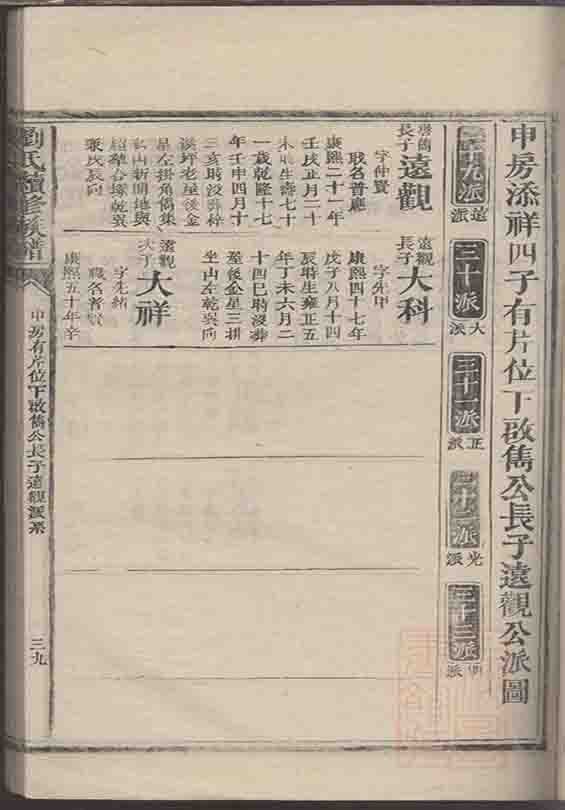 申房添祥四子有片位下啟雋公長子遠觀公派圖
二十九派
遠派
三十派
大派
三十一派
正派
三十二派
光派
三十三派
派
啓雋
長子
遠觀
字仲賢
職名普應
康熙二十一年
壬戌正月二十
未時生壽七十
一歲乾隆十七
年壬申四月十
三亥時沒葬梓
溪坪老屋後金
星左掛角雋集
山新開地與
超離合塚乾巽
兼戌辰向
遠觀
長子
大科
字先甲
康熙四十七年
戊子八月十四
辰時生雍正五
年丁未六月二
十四巳時沒葬
屋後金星三掛
坐山左乾巽向
遠觀
次子
大祥
字先緒
職名者賢
康熙五十年辛
劉氏續修族譜
申房有片位下啟雋公長子遠觀派系
三九